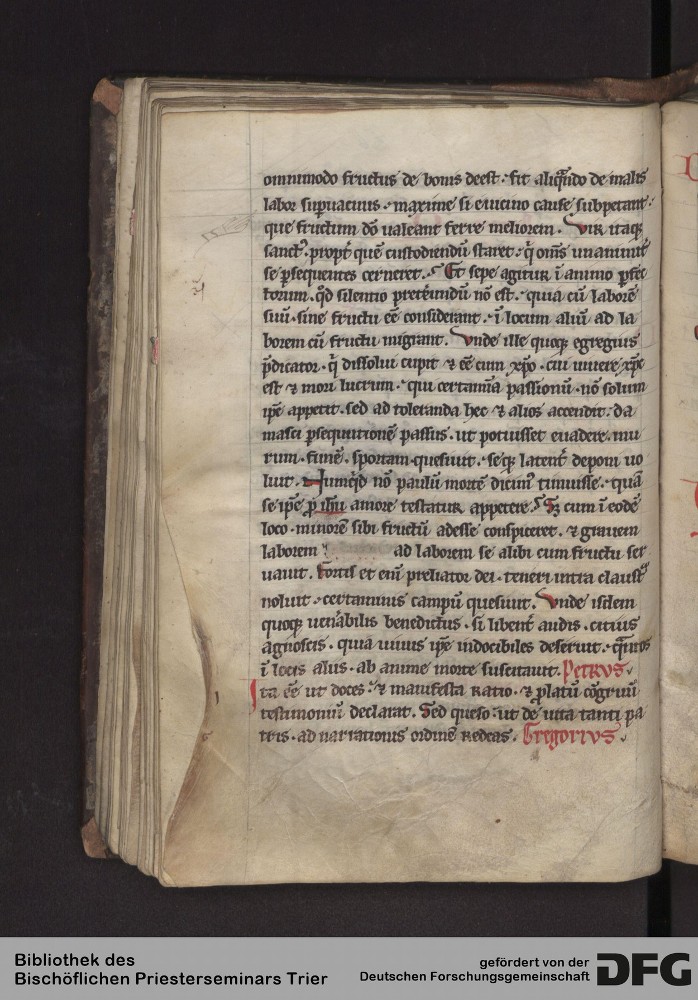 omnimodo fructus de bonis deest · fit aliqn̄do de malis
labor supuacuus · maxime si e uicino cause subpetant ·
que fructum dō ualeant ferre meliorem . Vir itaq;
sanctꝰ · propt̄ quē custodiendū staret · q̄ om̄s unanimit̄
se p̲sequentes cerneret . Et sepe agitur ī animo p̲fec
torum · qd̄ silentio pret̄eundū nō est · quia cū laborē
suū · sine fructu eē considerant · ī locum aliū ad la
borem cū fructu migrant . Vnde ille quoq; egregius
p̄dicator · q̄ dissolui cupit ⁊ eē cum xp̄o · cui uiuere xp̄c
est ⁊ mori lucrum · qui certamīa passionū · nō solum
ip̄e appetit · sed ad toleranda hec ⁊ alios accendit · da
masci p̲sequutionē passus · ut potuisset euadere · mu
rum · funē · sportam · quesiuit · seq; latent̄ deponi uo
luit . Numqd̄ nō paulū mortē dicimꝰ timuisse · quā
se ip̄e p̲ ih̄u amore testatur appetere · Sꝫ cum ī eodē
loco · minorē sibi fructū adesse conspiceret · ⁊ grauem
laborem ad laborem se alibi cum fructu ser
uauit . Fortis et eni̅ preliator dei · teneri intra claustᵃ
noluit · certaminis campū quesiuit . Vnde isdem
quoq; uen̄abilis benedictus · si libent̄ audis · citius
agnoscis · quia uiuus ip̄e indocibiles deseruit · q̄mtos
ī locis aliis · ab anime morte suscitauit . PETRVS ·
Ita eē ut doces · ⁊ manifesta ratio · ⁊ p̲latū cōgruū
testimoniū declarat . Sed queso · ut de uita tanti pa
tris · ad narrationis ordinē redeas . Gregorivs ·
Bibliothek des
Bischöflichen Priesterseminars Trier
gefördert von der
Deutschen Forschungsgemeinschaft
DFG